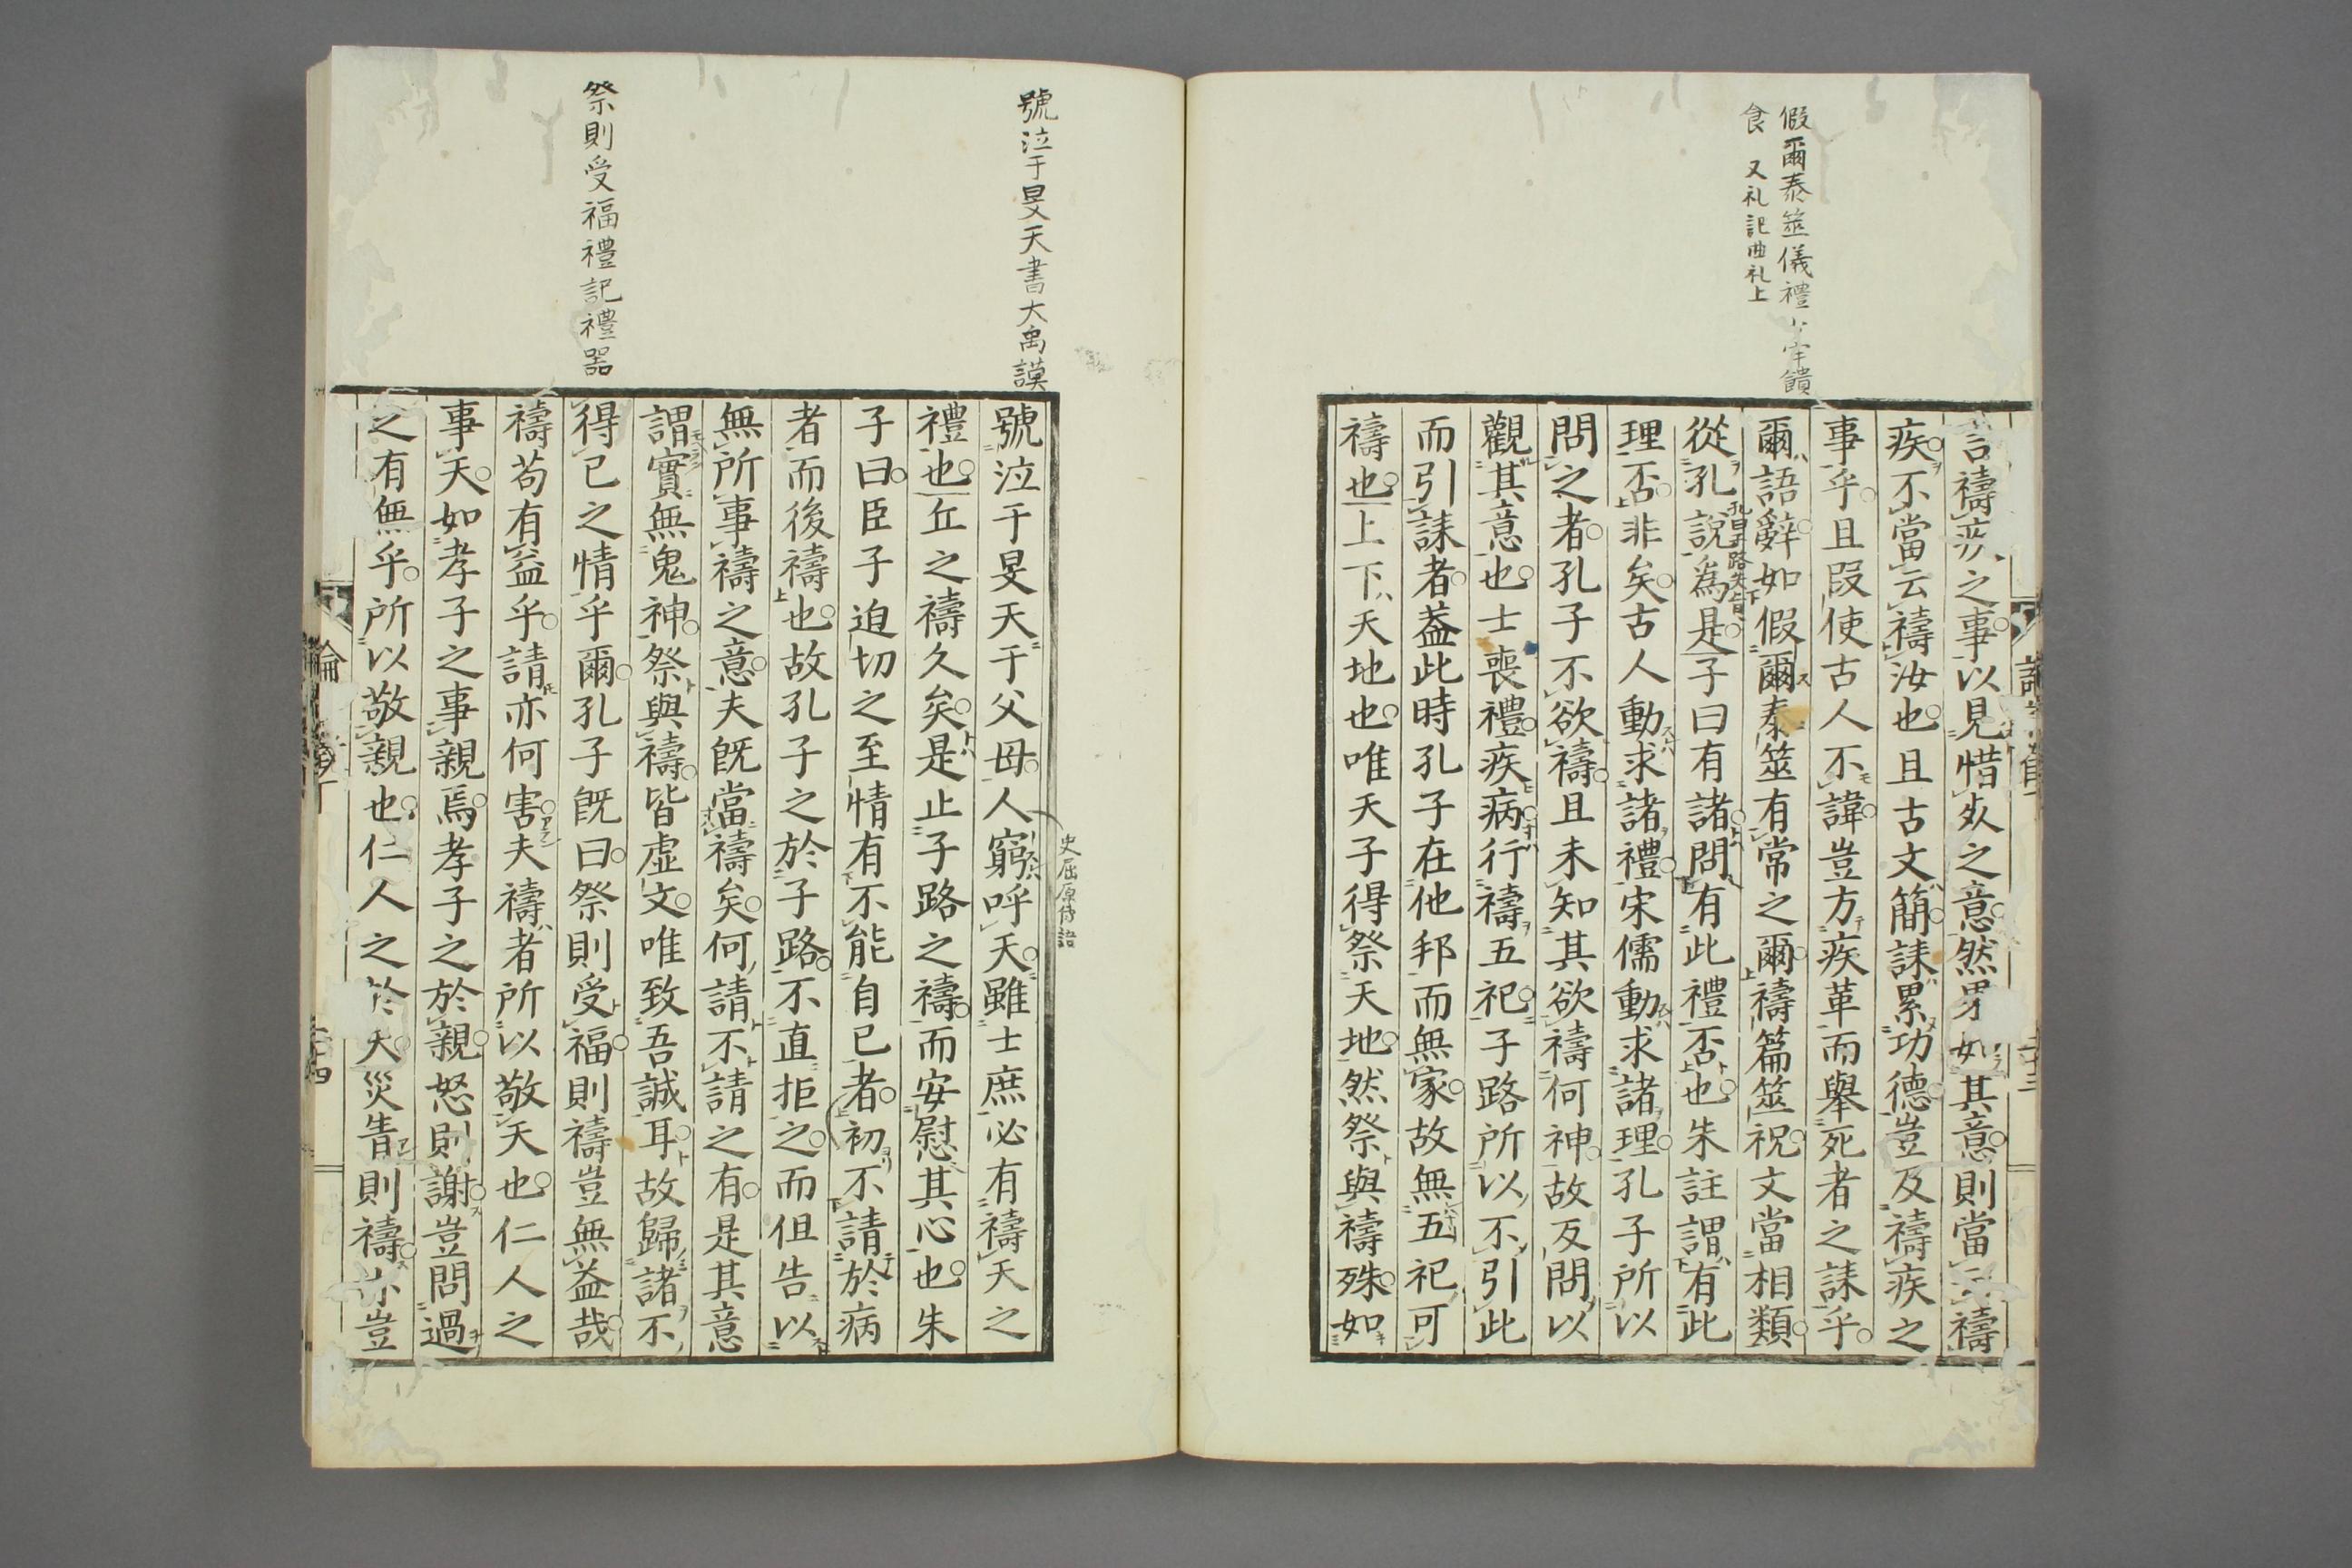 假爾泰筮儀禮少牢饋
食 又礼記曲礼上
言禱疾之事以見惜死之意然果如其意則當云禱
疾不當云禱汝也且古文簡誄累功德豈及禱疾之
事乎且叚使古人不諱豈方疾革而舉死者之誄乎
爾語辭如假爾泰筮有常之爾禱篇筮祝文當相類
從孔說為是子曰有諸問有此禮否也朱註謂有此
孔曰子路失旨
理否非矣古人動求諸禮宋儒動求諸理孔子所以
問之者孔子不欲禱且未知其欲禱何神故反問以
觀其意也士喪禮疾病行禱五祀子路所以不引此
而引誄者蓋此時孔子在他邦而無家故無五祀可
禱也上下天地也唯天子得祭天地然祭與禱殊如
號泣于旻天書大禹謨
祭則受福禮記禮器
號泣于旻天于父母人窮呼天雖士庶必有禱天之
史屈原傳語
禮也丘之禱久矣是止子路之禱而安慰其心也朱
子曰臣子迫切之至情有不能自已者初不請於病
者而後禱也故孔子之於子路不直拒之而但告以
無所事禱之意夫既當禱矣何請不請之有是其意
謂實無鬼神祭與禱皆虛文唯致吾誠耳故歸諸不
得已之情乎爾孔子既曰祭則受福則禱豈無益哉
禱苟有益乎請亦何害夫禱者所以敬天也仁人之
事天如孝子之事親焉孝子之於親怒則謝豈問過
之有無乎所以敬親也仁人之於天災眚則禱亦豈